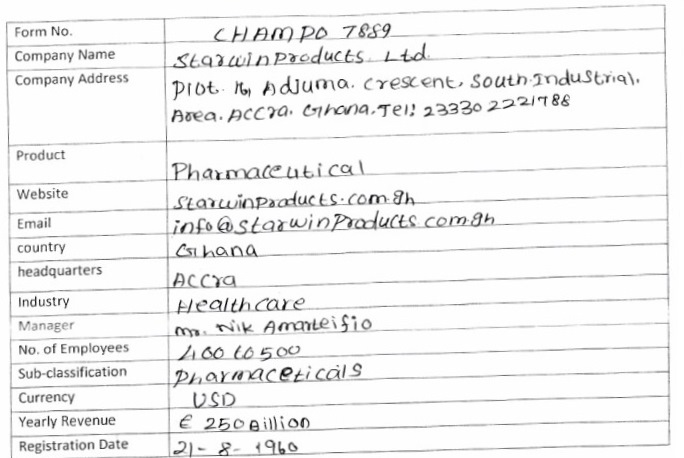 Form No. CHAMPO 7889
Company Name Starwin Products. Ltd.
Company Address Plot. 16, Adjuma. crescent, South Industrial.
Area. Accra. Ghana. Tel: 23330 2221788
Product Pharmaceutical
Website Starwinproducts.com.gh
Email info@starwinproducts.com.gh
country Ghana
headquarters Accra
Industry Healthcare
Manager Mr. Nik Amarteifio
No. of Employees 400 to 500
Sub-classification Pharmaceticals
Currency USD
Yearly Revenue € 250 Billion
Registration Date 21-8-1960